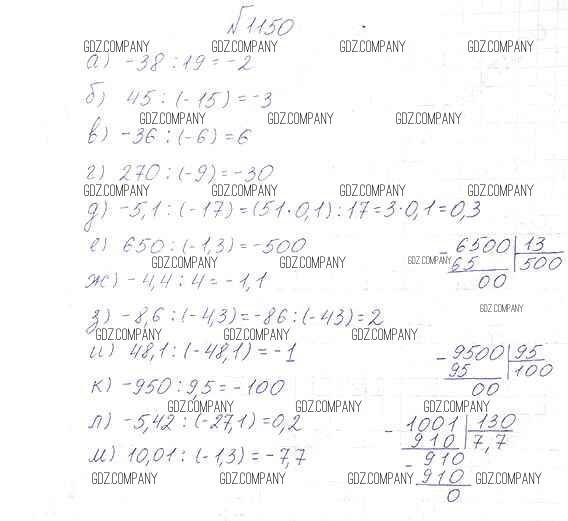 №1150
GDZ.COMPANY GDZ.COMPANY GDZ.COMPANY GDZ.COMPANY
а) -38 : 19 = -2
б) 45 : (-15) = -3
GDZ.COMPANY GDZ.COMPANY GDZ.COMPANY
в) -36 : (-6) = 6
г) 270 : (-9) = -30
GDZ.COMPANY GDZ.COMPANY GDZ.COMPANY GDZ.COMPANY
д) -5,1 : (-17) = (51 · 0,1) : 17 = 3 · 0,1 = 0,3
е) 650 : (-1,3) = -500
- 6500 | 13
65 | 500
00
GDZ.COMPANY GDZ.COMPANY GDZ.COMPANY
ж) -4,4 : 4 = -1,1
GDZ.COMPANY
з) -8,6 : (-4,3) = -86 : (-43) = 2
GDZ.COMPANY GDZ.COMPANY GDZ.COMPANY
и) 48,1 : (-48,1) = -1
- 9500 | 95
95 | 100
00
к) -950 : 9,5 = -100
GDZ.COMPANY GDZ.COMPANY GDZ.COMPANY
л) -5,42 : (-27,1) = 0,2
- 1001 | 130
910 | 7,7
- 910
910
0
м) 10,01 : (-1,3) = -7,7
GDZ.COMPANY GDZ.COMPANY GDZ.COMPANY GDZ.COMPANY